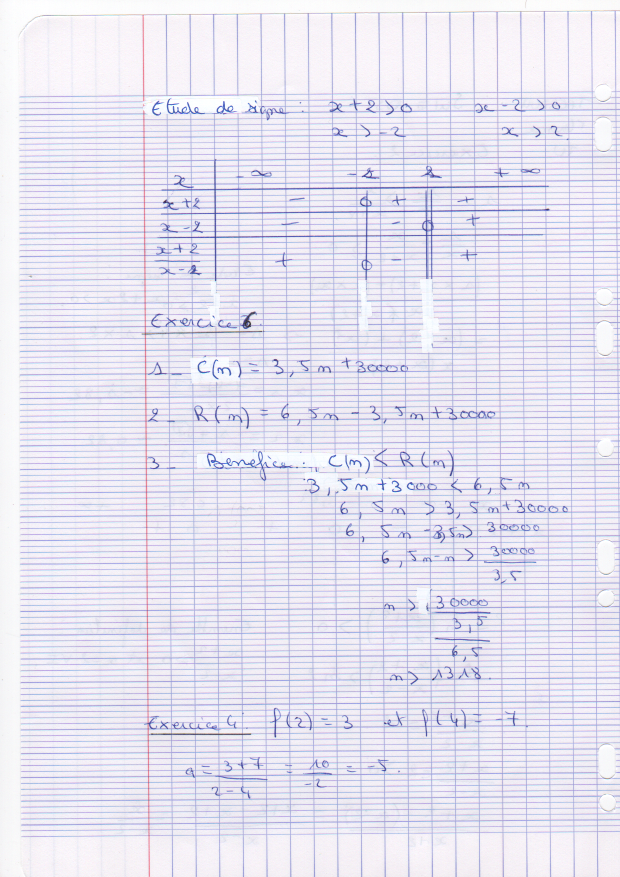 Etude de signe : x + 2 > 0 x - 2 > 0
x > -2 x > 2
x -∞ -2 2 + ∞
x + 2 - 0 + +
x - 2 - - 0 +
x + 2
x - 2 + 0 - +
Exercice 6
1 - C(n) = 3,5n + 30000
2 - R(n) = 6,5n - 3,5n + 30000
3 - Bénéfice : C(n) < R(n)
3,5n + 3000 < 6,5n
6,5n > 3,5n + 30000
6,5n - 3,5n > 30000
6,5n - n > 30000
3,5
n > 30000
3,5
6,5
n > 1318.
Exercice 4 : f(2) = 3 et f(4) = -7.
a = 3 + 7 = 10 = -5.
2 - 4 -2